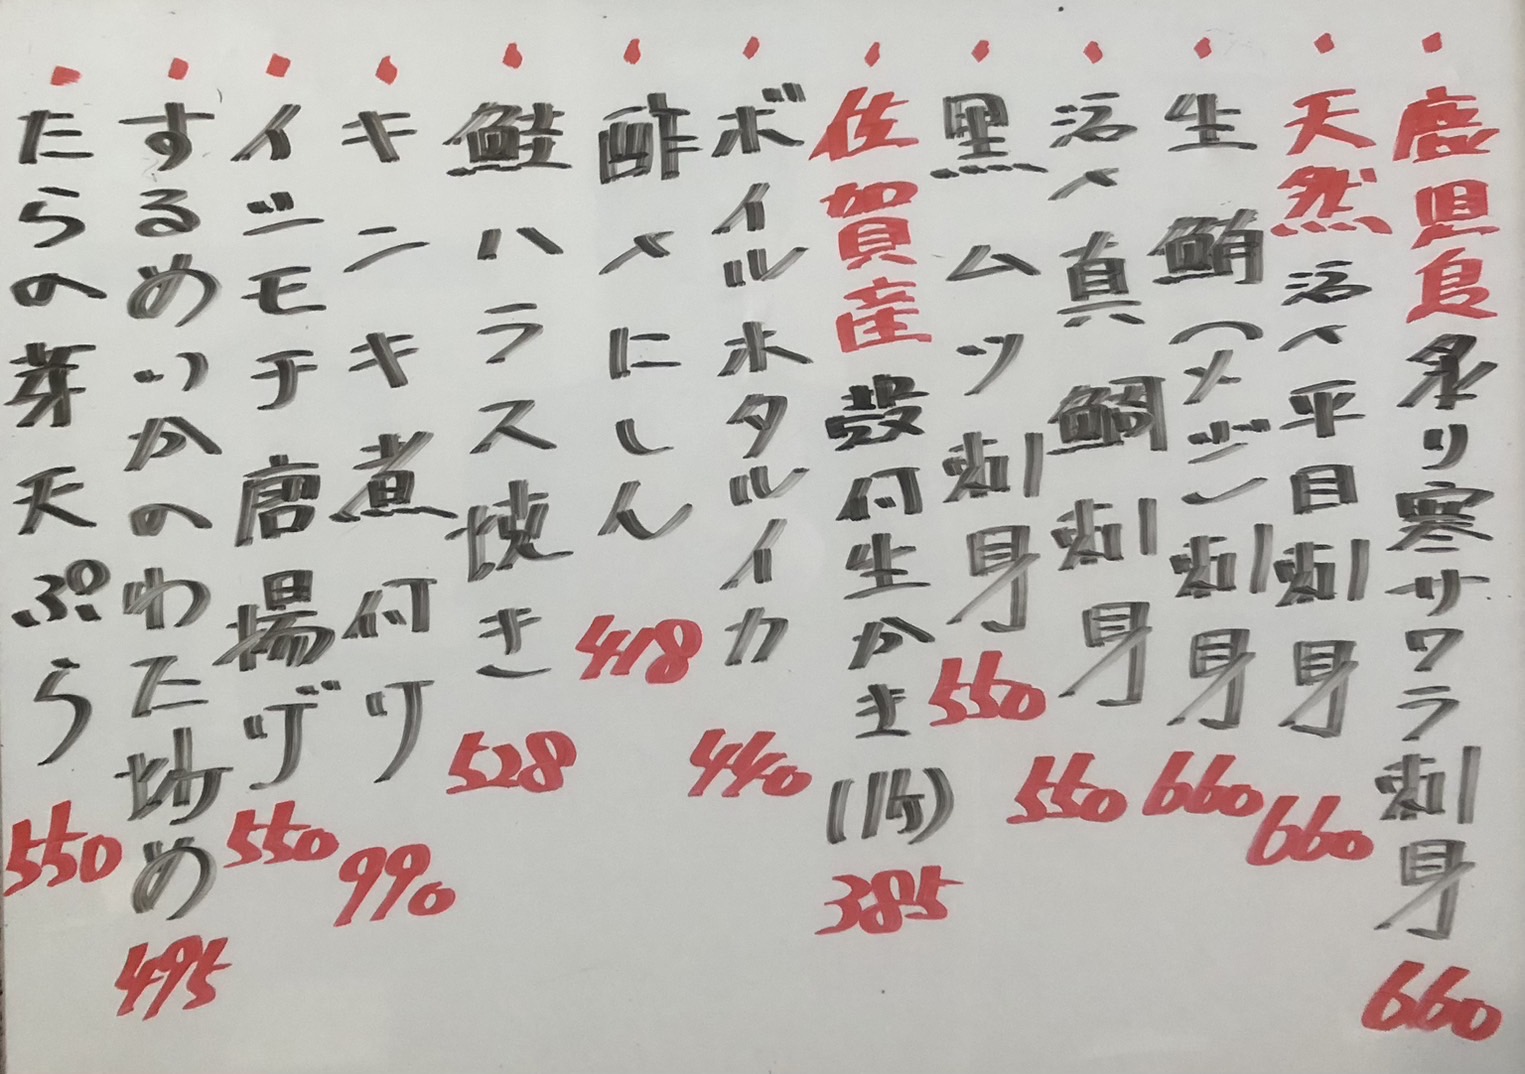 鹿児島炙り寒サワラ刺身 660
天然活〆平目刺身 660
生鮪(メジ)刺身 660
活〆真鯛刺身 550
黒ムツ刺身 550
佐賀産殻付生かき(1ケ) 385
ボイルホタルイカ 440
酢〆にしん 418
鮭ハラス焼き 528
キンキ煮付け 990
イシモチ唐揚げ 550
するめいかのわた炒め 495
たらの芽天ぷら 550